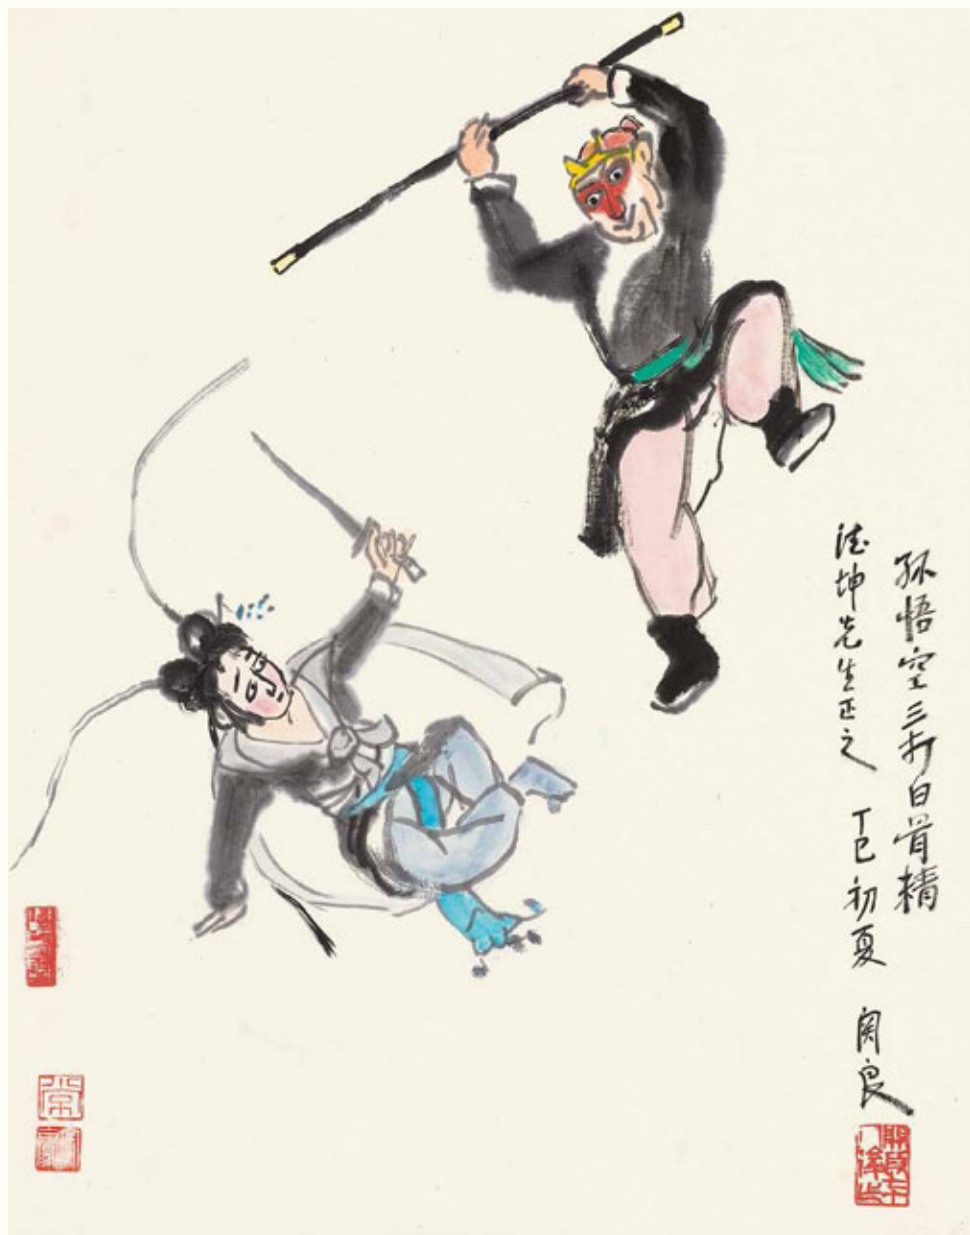 孫悟空三打白骨精
德坤先生正之 丁巳初夏 関良